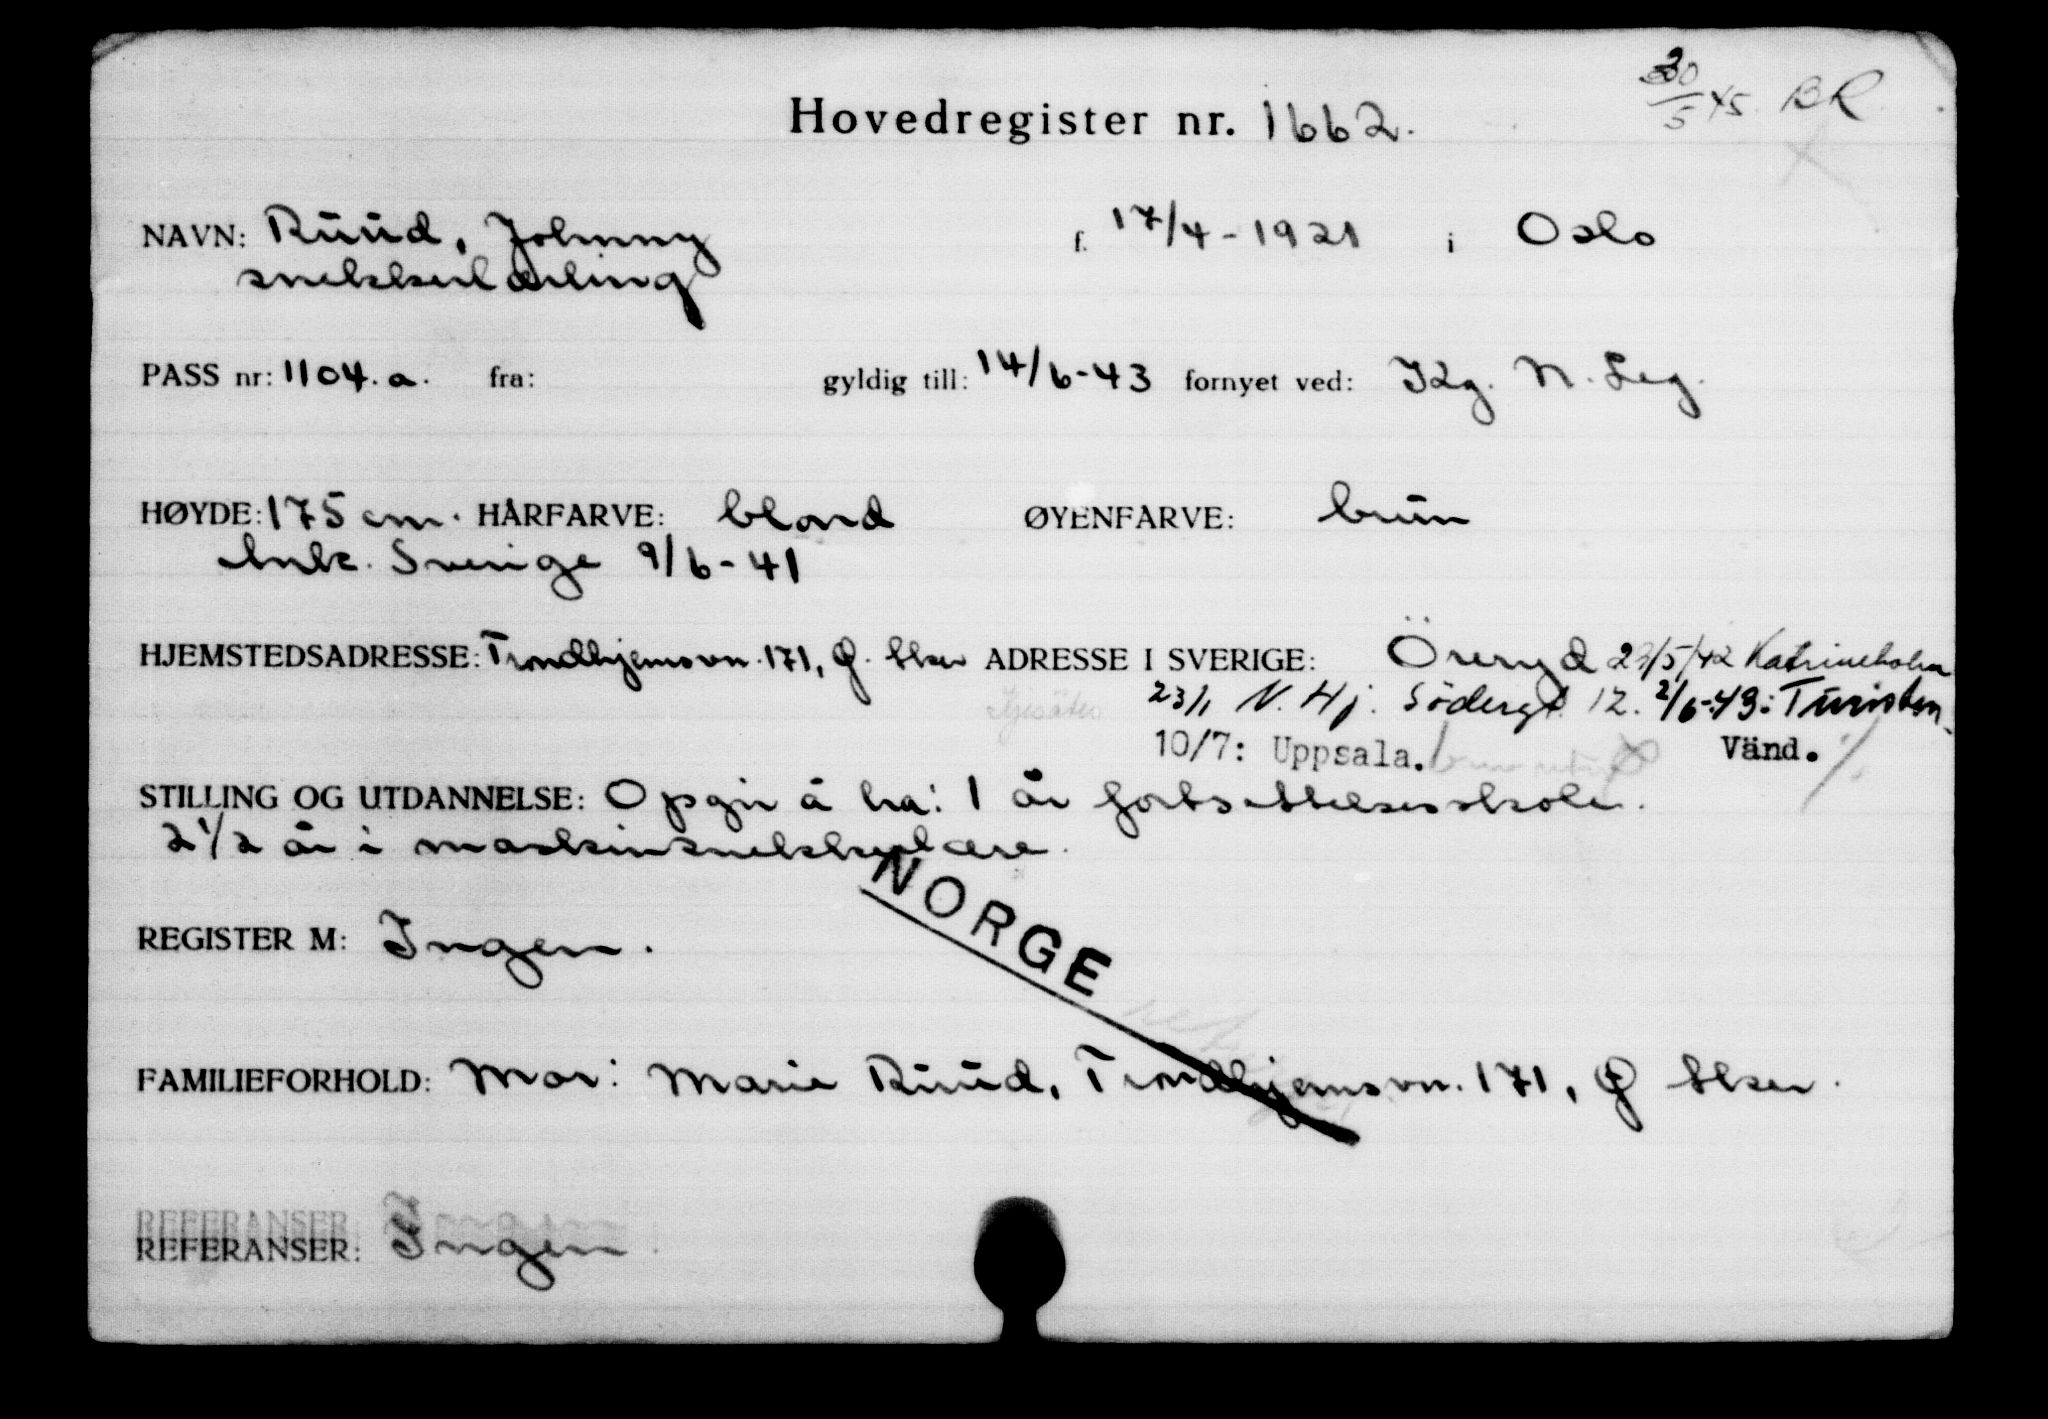 30/5 45. BR
Hovedregister nr. 1662.
NAVN: Ruud, Johnny f. 17/4-1921 i Oslo
snekkerlærling
PASS nr: 1104.a. fra: gyldig till: 14/6-43 fornyet ved: Kg. N. Leg.
HØYDE: 175 cm. HÅRFARVE: blond ØYENFARVE: brun
Ank. Sverige 9/6-41
HJEMSTEDSADRESSE: Trondhjemsvn. 171, Ø. Aker ADRESSE I SVERIGE: Öreryd 23/5/42 Katrineholm
23/1 N. Hj. Södergt. 12. 2/6-43: Turisten.
10/7: Uppsala. Vänd. ./.
STILLING OG UTDANNELSE: Opgir å ha: 1 år fortsettelsesskole.
2 1/2 år i maskinsnekkerlære.
NORGE
REGISTER M: Ingen.
FAMILIEFORHOLD: Mor: Marie Ruud, Trondhjemsvn. 171, Ø Aker.
REFERANSER: Ingen.